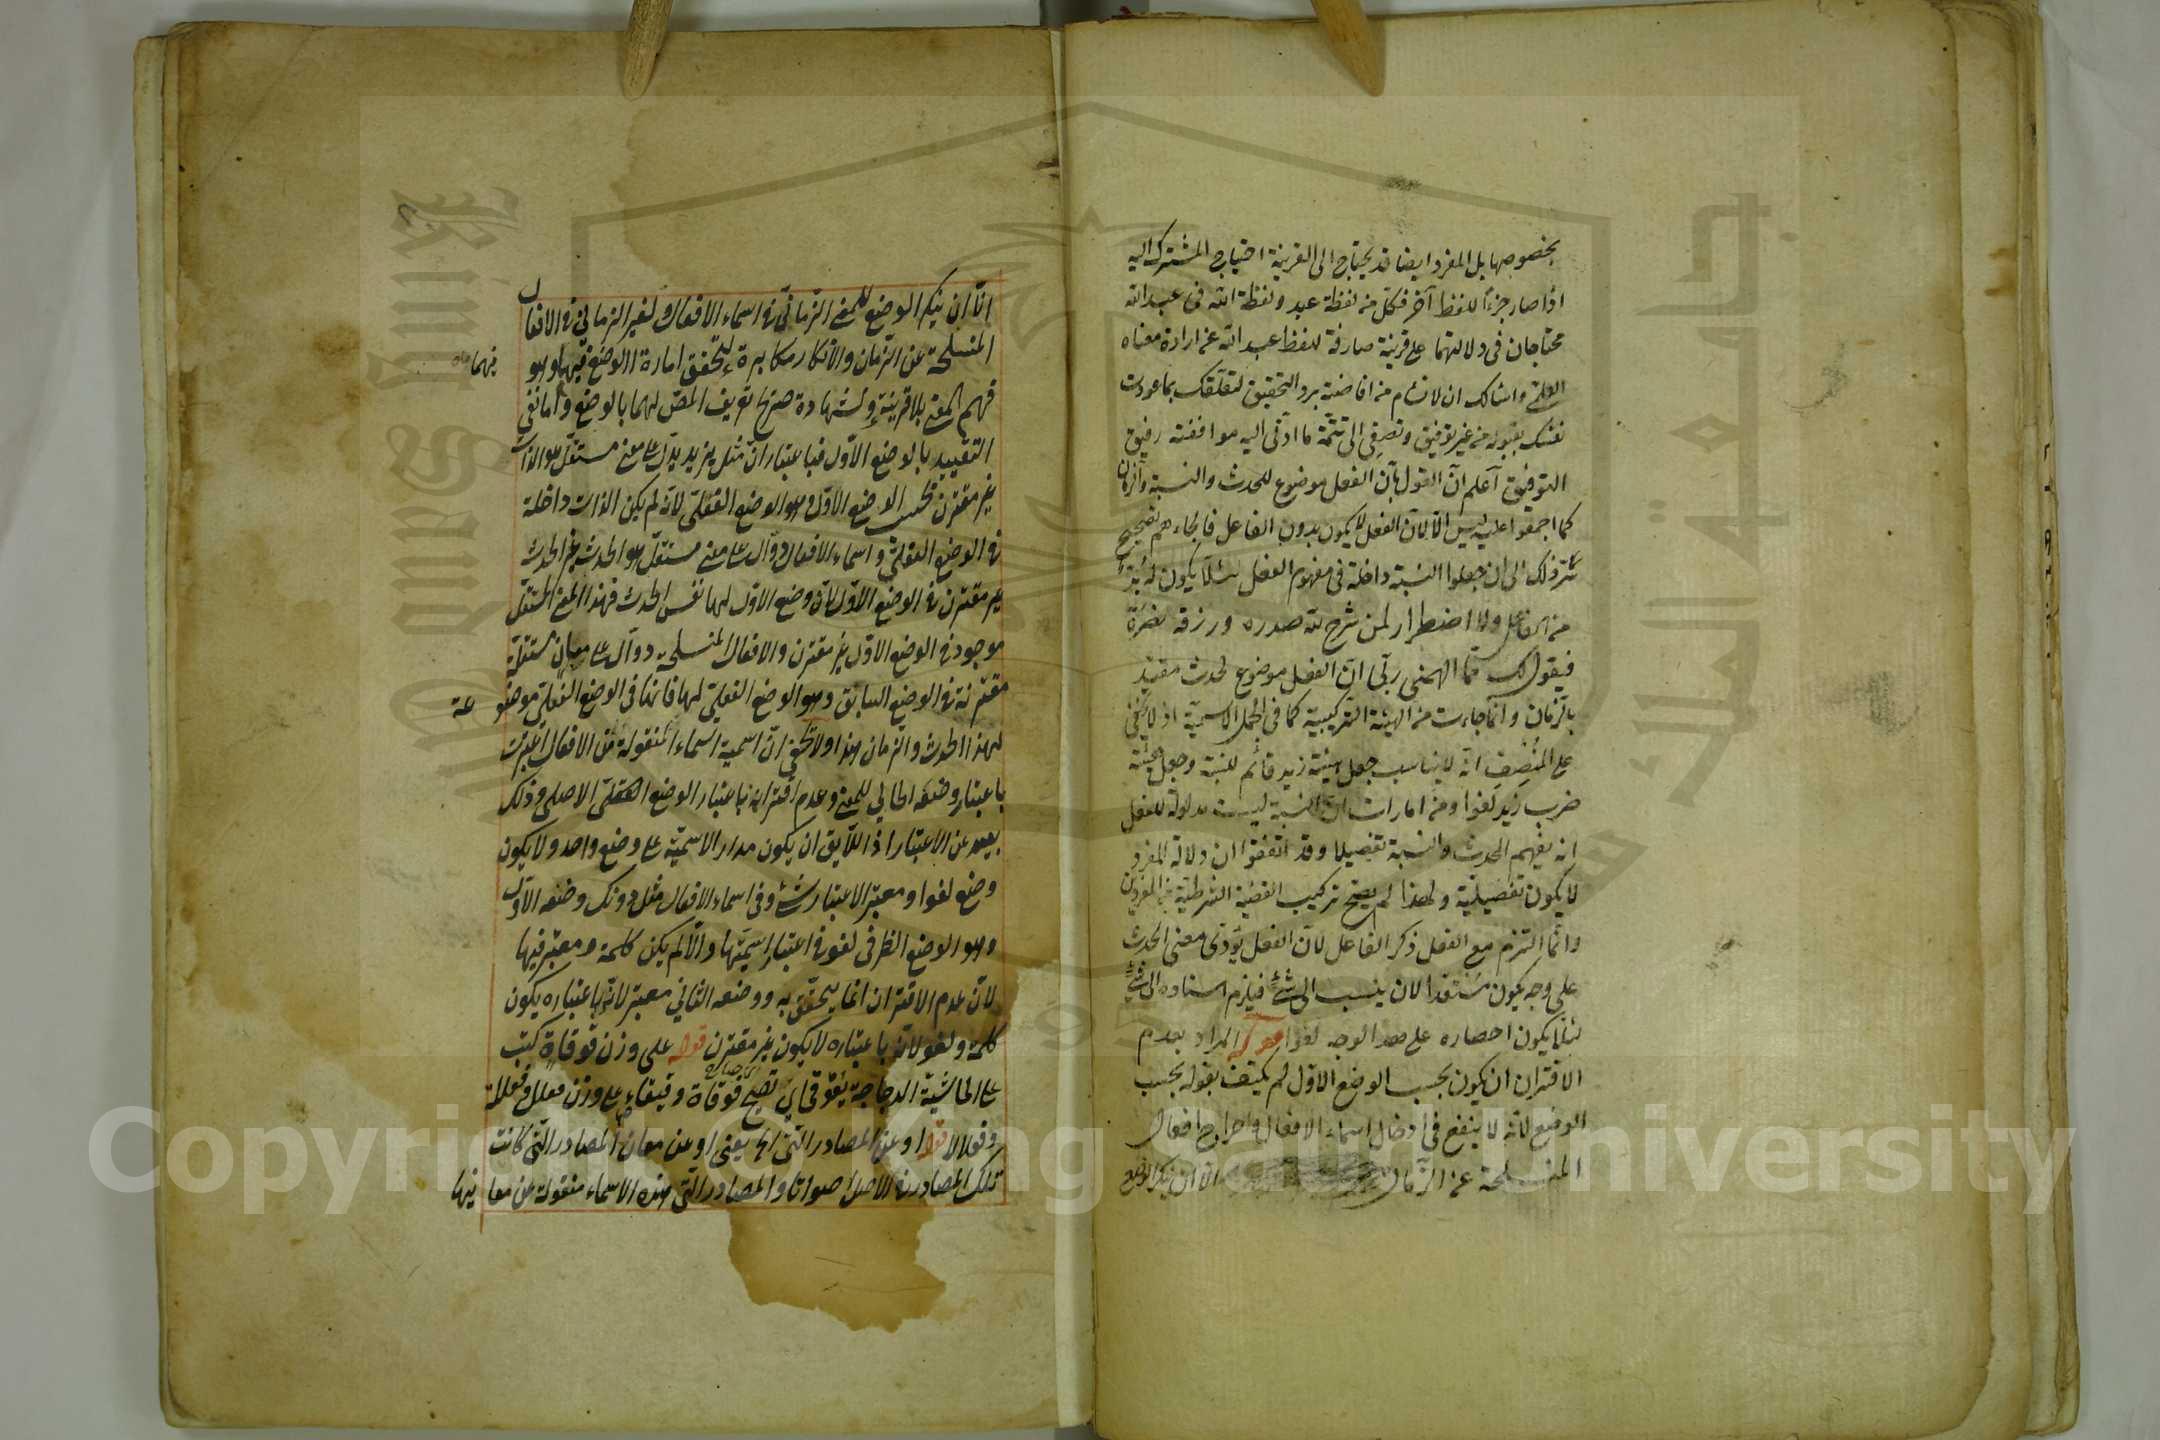 بخصوصها بل المفرد ايضا قد يحتاج الى القرينة احتياج المشترك اليه
اذا صار جزءا للفظ آخر فكل من لفظة عبد ولفظة الله فى عبد الله
محتاجان فى دلالتهما على قرينة صارفة للفظ عبد الله عن ارادة معناه
العلمى واسالك ان لا تسأم من افاضة برد التحقيق لتعلقك بما عودت
نفسك بقبوله من غير توفيق وتصرفى الى تتمة ما ادى اليه موافقته رفيق
التوفيق اعلم ان القول بان الفعل موضوع للحدث والنسبة والزمان
كما اجمعوا عليه ليس الا لان الفعل لا يكون بدون الفاعل فالجاءهم تصحيح
ذلك الى ان جعلوا النسبة داخلة فى مفهوم الفعل لئلا يكون له بد
من الفاعل ولا اضطرار لمن شرح الله صدره ورزقه نصرة
فيقول لك مما الهمنى ربى ان الفعل موضوع لحدث مقيد
بالزمان وانما جاءت من الهيئة التركيبية كما فى الجمل الاسمية اذ لا يخفى
على المنصف انه لا يناسب جعل هيئة زيد قائم للنسبة وجعل هيئة
ضرب زيد لغوا ومن امارات ان النسبة ليست مدلولة للفعل
انه يفهم الحدث والنسبة تفصيلا وقد اتفقوا ان دلالة المفرد
لا يكون تفصيلية ولهذا لم يصح تركيب القضية الشرطية من المفردين
وانما التزم مع الفعل ذكر الفاعل لان الفعل يؤدى معنى الحدث
على وجه يكون مستعدا لان ينسب الى شئ فيلزم اسناده الى شئ
لئلا يكون احضاره على هذا الوجه لغوا قوله المراد بعدم
الاقتران ان يكون بحسب الوضع الاول لم يكتف بقوله بحسب
الوضع لانه لا ينفع فى ادخال اسماء الافعال واخراج افعال
المنسلخة عن الزمان الا ان ينكر الوضع
الا ان ينكر الوضع للمعنى الزمانى فى اسماء الافعال ولغير الزمانى فى الافعال
المنسلخة عن الزمان والانكار مكابرة لتحقق امارة الوضع فيها وهو
فيهما
فهم المعنى بلا قرينة ولشهادة صريح تعريف المص لهما بالوضع واما نفى
التقييد بالوضع الاول فباعتبار ان مثل يزيد يدل على معنى مستقل هو الذات
غير مقترن بحسب الوضع الاول وهو الوضع الفعلى لانه لم يكن الذات داخلة
فى الوضع الفعلى واسماء الافعال دوال على معنى مستقل هو الحدث غير الحدث
غير مقترن فى الوضع الاول لان وضع الاول لها نفس الحدث فهذا المعنى المستقل
موجود فى الوضع الاول غير مقترن والافعال المنسلخة دوال على معان مستقلة
مقترنة فى الوضع السابق وهو الوضع الفعلى لها فانها فى الوضع الفعلى موضوعة
لهذا الحدث والزمان هذا ولا يخفى ان اسمية اسماء المنقولة من الافعال اعتبرت
باعتبار وضعه الحالى للمعنى وعدم اقترانه باعتبار الوضع الاصلى وذلك
بعيد عن الاعتبار اذ اللايق ان يكون مدار الاسمية على وضع واحد ولا يكون
وضع لغوا ومعتبر الاعتبار شئ وفى اسماء الافعال مثل دونك وضعه الاول
وهو الوضع الظرفى لغو فى اعتبار اسميتها والا لم يكن كلمة ومعتبر فيها
لان عدم الاقتران انما يتحقق به ووضعه الثانى معتبر لانه باعتباره يكون
كلمة ولغو لانه باعتباره لا يكون غير مقترن قوله على وزن قوقاة كتب
على الحاشية الدجاجة يقوقى اى تصيح قوقاة وقيقاء على وزن فعلل فعللة
وفعلالا قوله او عن المصادر التى الخ يعنى او عن معان المصادر التى كانت
تلك المصادر فى الاصل اصواتا والمصادر التى هذه الاسماء منقولة عن معانيها